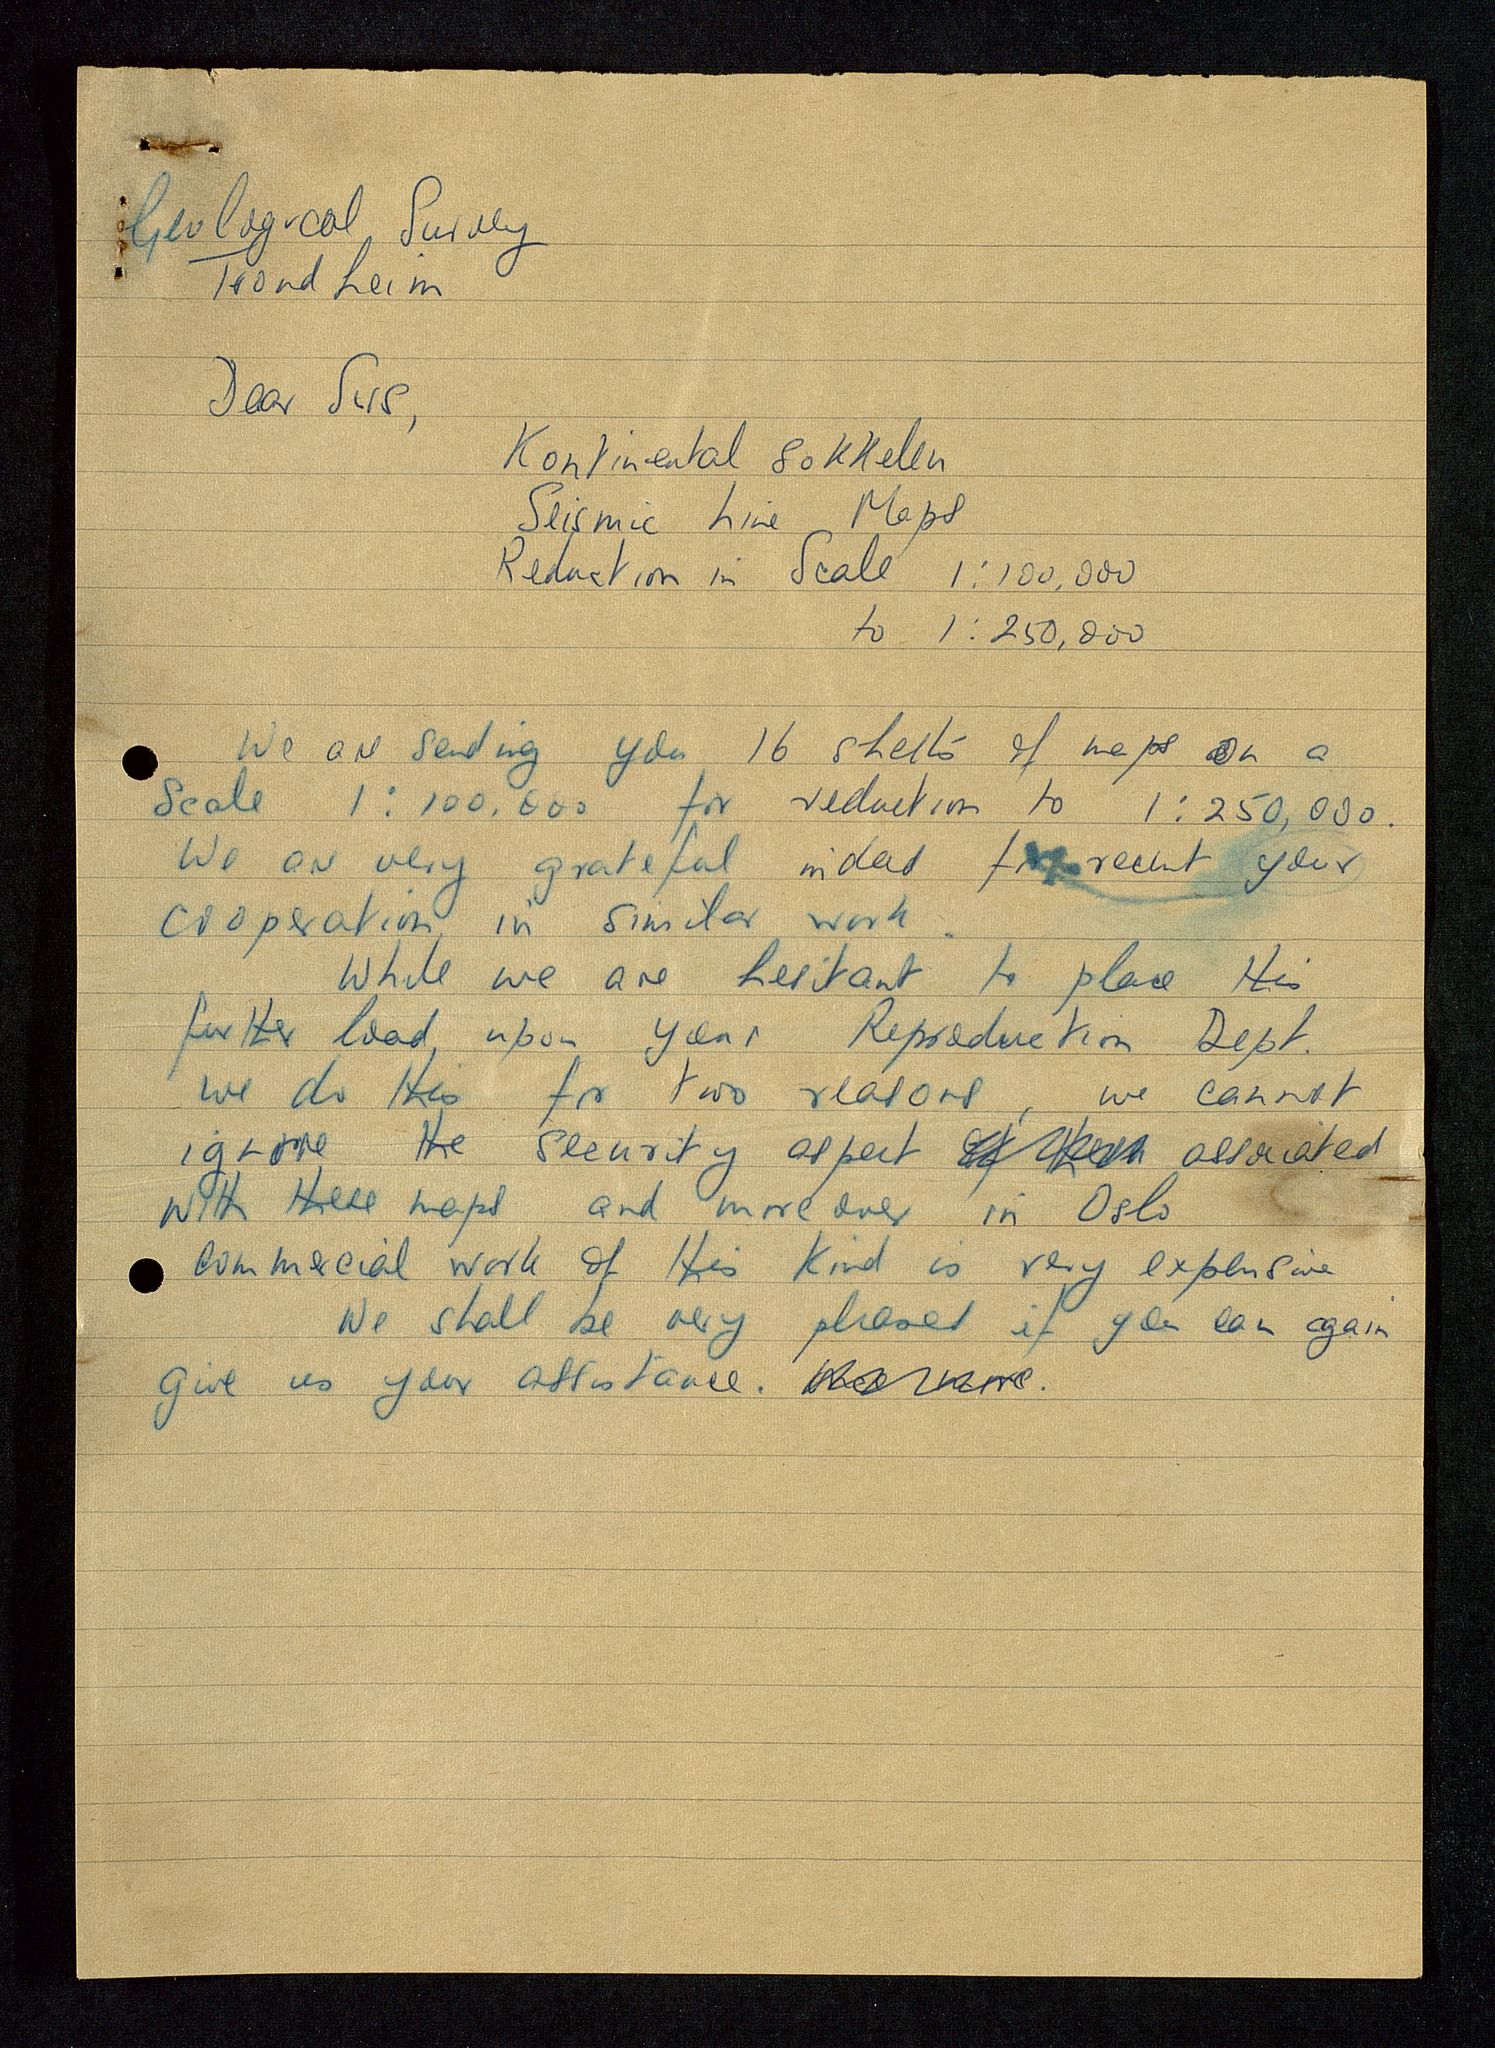 Geological Survey
Trondheim
Dear Sirs,
Kontinental sokkelen
Seismic Line Maps
Reduction in Scale 1:100,000
to 1:250,000
We are sending you 16 sheets of maps on a
Scale 1:100,000 for reduction to 1:250,000.
We are very grateful indeed for recent your
cooperation in similar work.
While we are hesitant to place this
further load upon your Reproduction Dept.
we do this for two reasons, we cannot
ignore the security aspect of them associated
with these maps and moreover in Oslo
commercial work of this kind is very expensive
We shall be very pleased if you can again
give us your assistance.